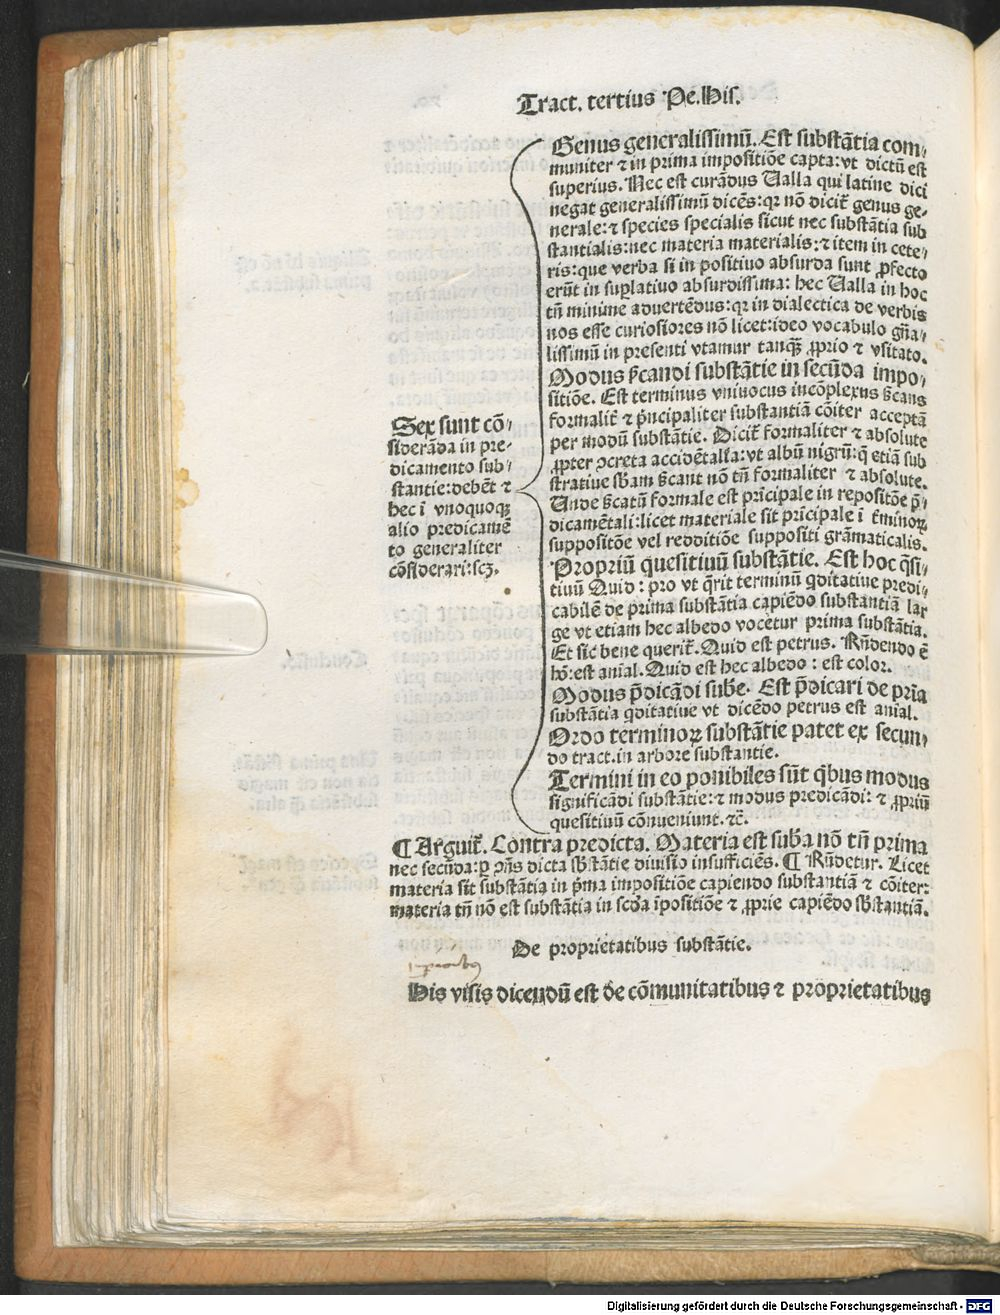 Tract. tertius Pe.His.
Sex sunt cō⸗
siderāda in pre⸗
dicamento sub⸗
stantie:debēt ⁊
hec ī vnoquoqꝫ
alio predicamē
to generaliter
cōsiderari:scꝫ.
Genus generalissimū. Est substātia com⸗
muniter ⁊ in prima impositiōe capta:vt dictū est
superius. Nec est curādus Ualla qui latine dici
negat generalissimū dicēs:qꝛ nō dicit̄ genus ge⸗
nerale:⁊ species specialis sicut nec substātia sub
stantialis:nec materia materialis:⁊ item in cete⸗
ris:que verba si in positiuo absurda sunt ꝓfecto
erūt in suꝑlatiuo absurdissima: hec Ualla in hoc
tn̄ minime aduertēdus:qꝛ in dialectica de verbis
nos esse curiosiores nō licet:ideo vocabulo gn̄a⸗
lissimū in presenti vtamur tanqꝫ ꝓprio ⁊ vsitato.
Modus s̄candi substātie in secūda impo⸗
sitiōe. Est terminus vniuocus incōplexus s̄cans
formalit̄ ⁊ p̄ncipaliter substantiā cōiter acceptā
per modū substātie. Dicit̄ formaliter ⁊ absolute
ꝓpter ꝯcreta accidētalia:vt albū nigrū:q̄ etiā sub
stratiue sb̄am s̄cant nō tn̄ formaliter ⁊ absolute.
Unde s̄catū formale est prīcipale in repositōe p̄⸗
dicamētali:licet materiale sit prīcipale ī t̄minoꝝ
suppositōe vel redditiōe suppositi grāmaticalis.
Propriū quesitiuū substātie. Est hoc q̄si⸗
tiuū Quid: pro vt q̄rit terminū qditatiue predi⸗
cabilē de prima substātia capiēdo substantiā lar
ge vt etiam hec albedo vocetur prima substātia.
Et sic bene querit̄. Quid est petrus. Rn̄dendo ē
hō:est aīal. Quid est hec albedo : est color.
Modus p̄dicādi sube. Est p̄dicari de prīa
substātia qditatiue vt dicēdo petrus est aīal.
Ordo terminoꝝ substātie patet ex secun⸗
do tract.in arbore substantie.
Termini in eo ponibiles sūt q̄bus modus
significādi substātie:⁊ modus predicādi: ⁊ ꝓpriū
quesitiuū cōueniunt.⁊c̄.
¶ Arguit̄. Contra predicta. Materia est suba nō tn̄ prima
nec secūda:ꝑ ꝯn̄s dicta sb̄stātie diuisio insufficiēs. ¶ Rn̄detur. Licet
materia sit substātia in p̄ma impositiōe capiendo substantiā ⁊ cōiter:
materia tn̄ nō est substātia in scd̄a īpositiōe ⁊ ꝓprie capiēdo sb̄stantiā.
De proprietatibus substātie.
His visis dicendū est de cōmunitatibus ⁊ proprietatibus
Digitalisierung gefördert durch die Deutsche Forschungsgemeinschaft - DFG